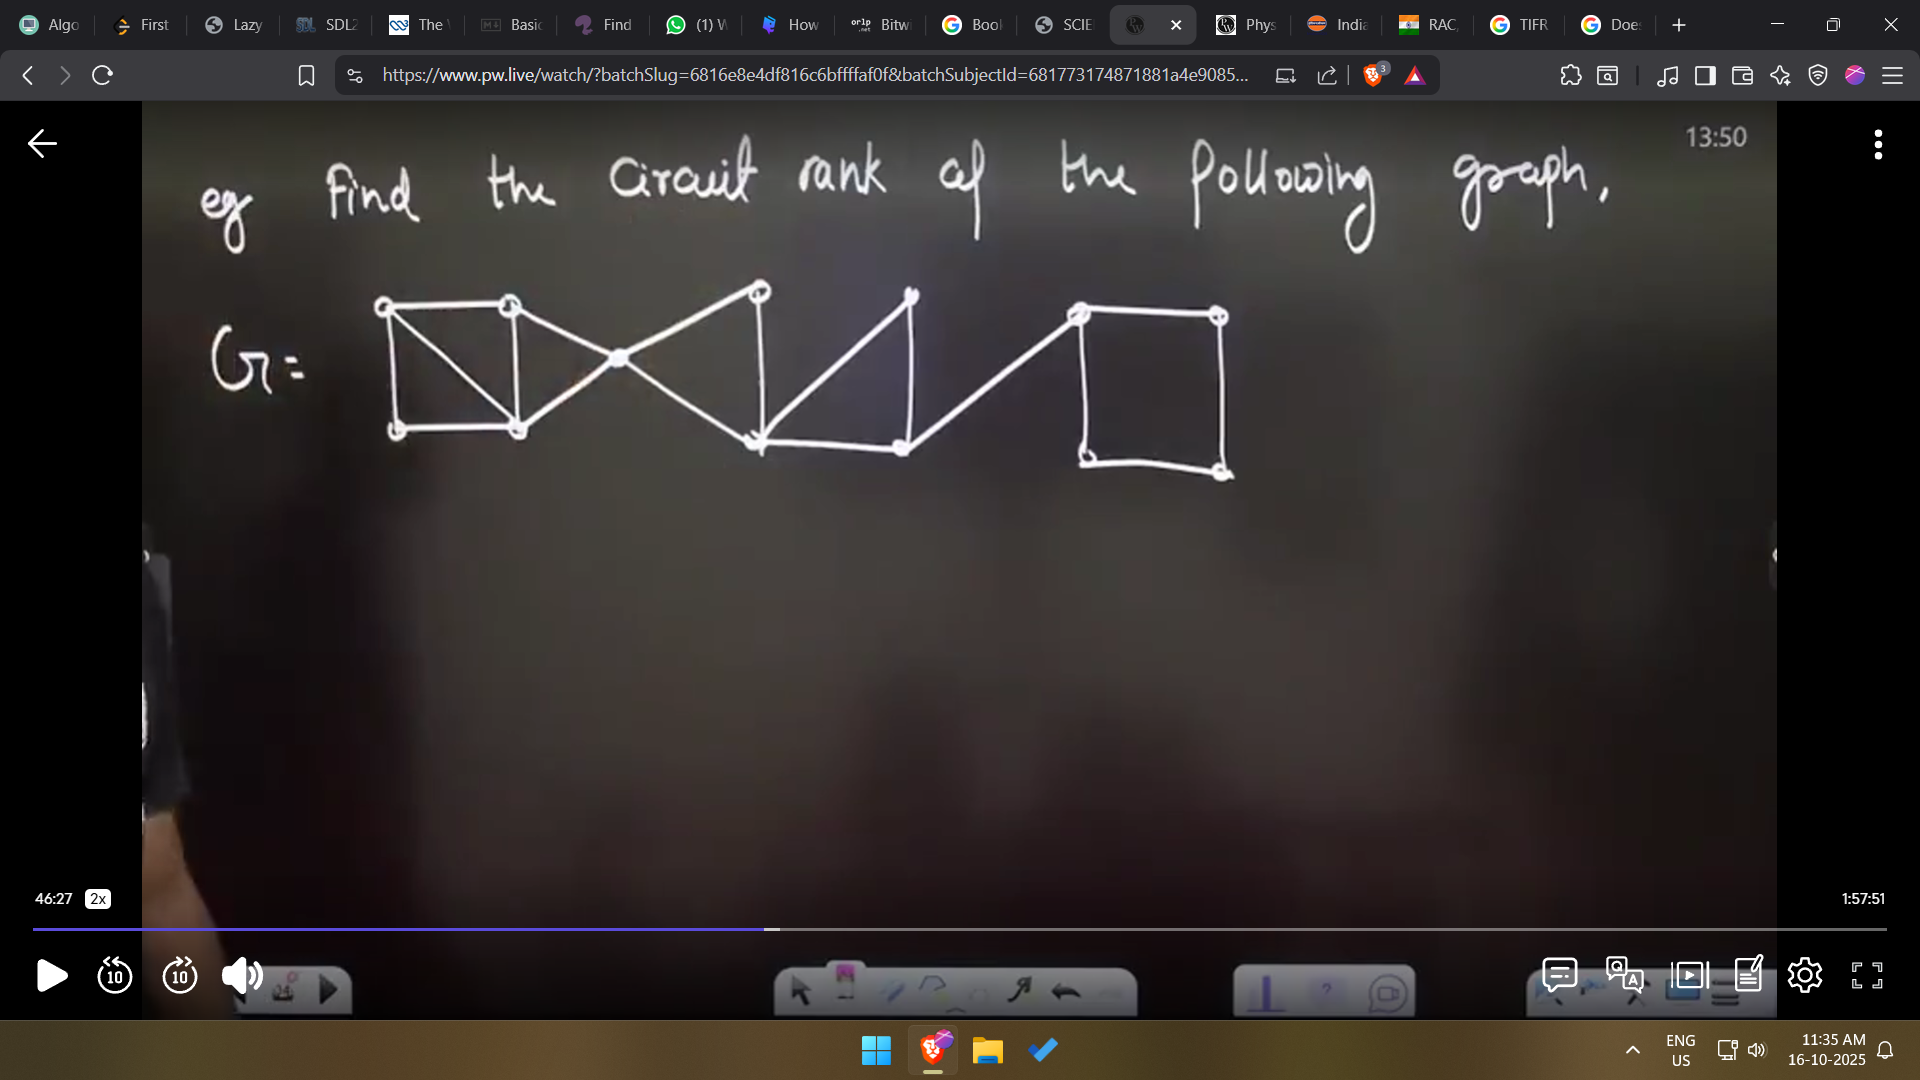 Algo
First
Lazy
SDL2
The
Basic
Find
(1) W
How
orlp .net
Bitwi
Book
SCIE
Phys
India
RAC,
TIFR
Does
https://www.pw.live/watch/?batchSlug=6816e8e4df816c6bffffaf0f&batchSubjectId=681773174871881a4e9085...
3
13:50
eg Find the Circuit rank of the following graph.
G =
46:27 2x
1:57:51
10 10
34
?
Q A
ENG
US
11:35 AM
16-10-2025